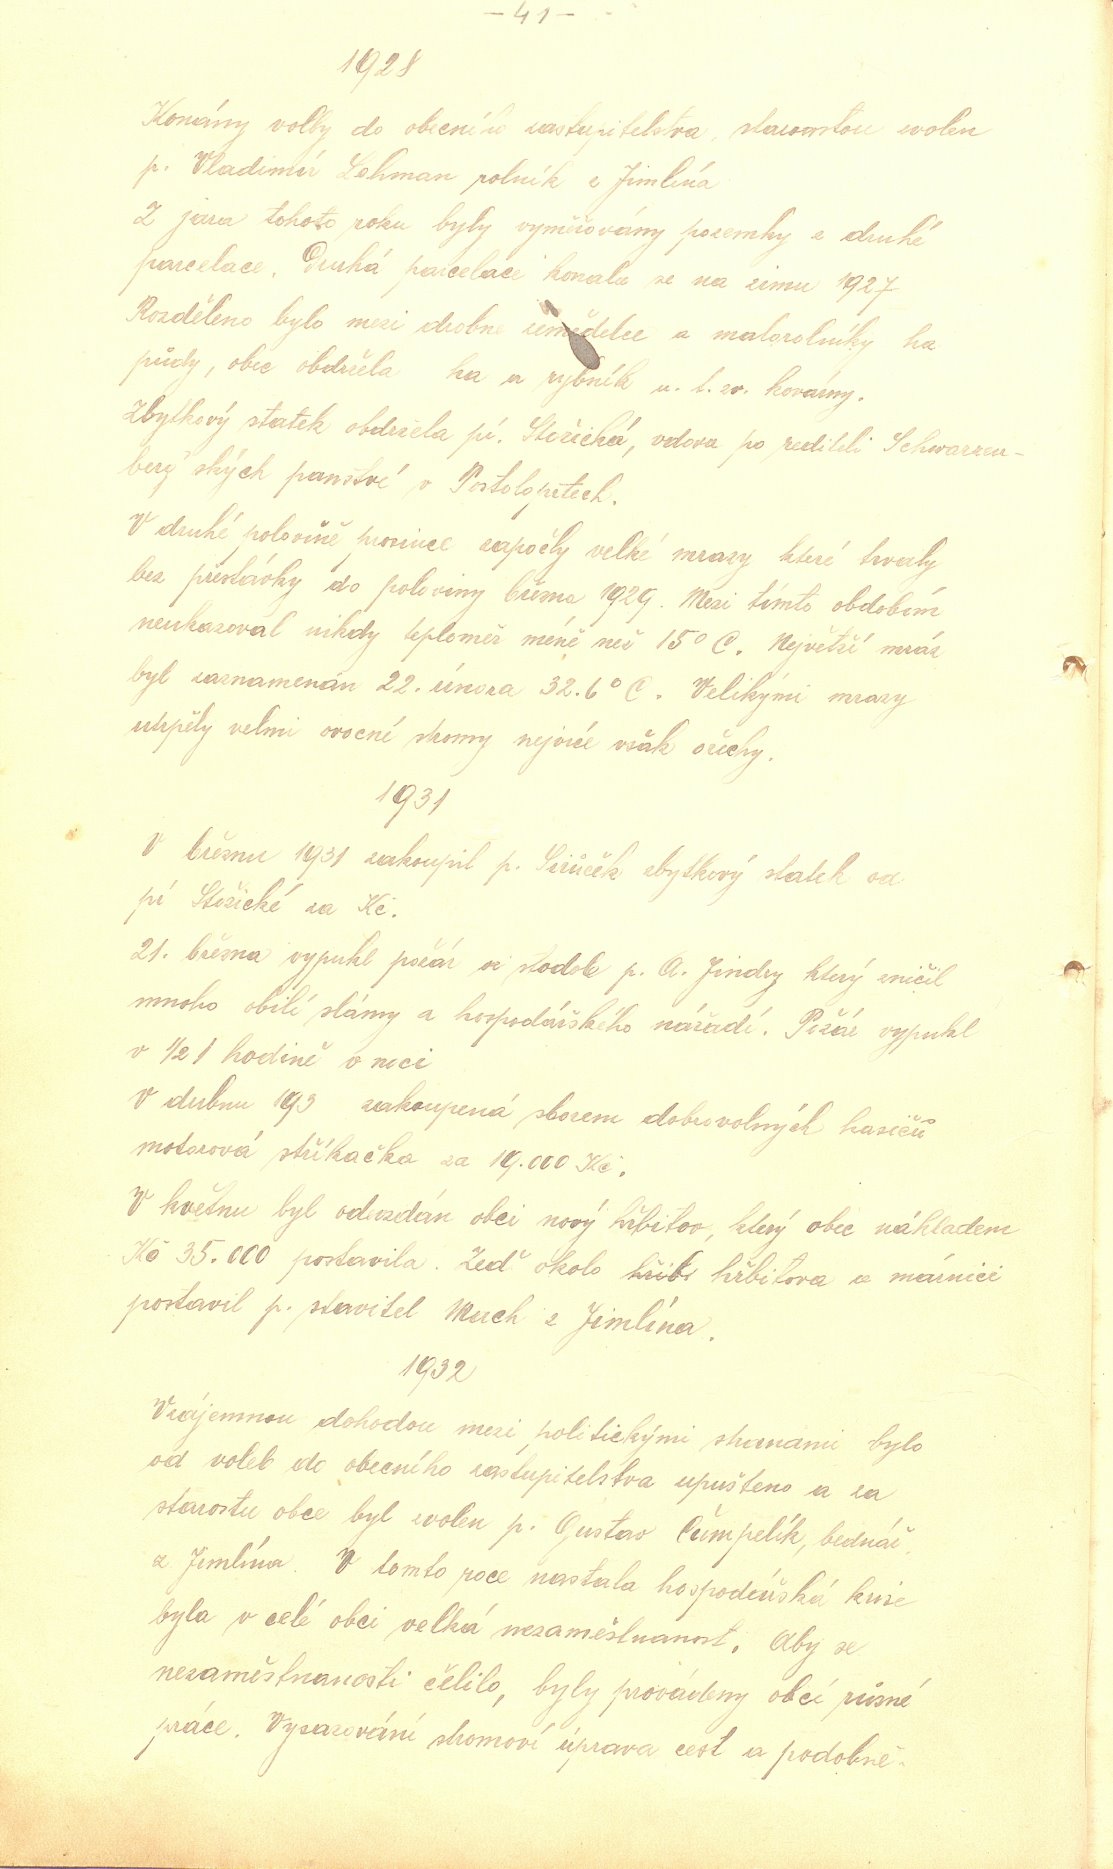 - 41 -
1928
Konány volby do obecního zastupitelstva, starostou zvolen
p. Vladimír Lehman rolník z Jimlína
Z jara tohoto roku byly vyměřovány pozemky z druhé
parcelace. Druhá parcelace konala se na zimu 1927
Rozděleno bylo mezi drobné zemědelce a malorolníky ha
půdy, obec obdržela ha a rybník u. t. zv. kovárny.
Zbytkový statek obdržela pí. Stožická, vdova po rediteli Schwarzen-
berg'ských panství v Postoloprtech.
V druhé polovině prosince započly velké mrazy které trvaly
bez přestávky do poloviny března 1929. Mezi tímto obdobím
neukazoval nikdy teploměr méně než 15° C. Největší mráz
byl zaznamenán 22. února 32.6° C. Velikými mrazy
utrpěly velmi ovocné stromy nejvíce však ořechy.
1931
V březnu 1931 zakoupil p. zbytkový statek od
pí Stožické za Kč.
21. března vypukl požár ve stodole p. A. Jindry který zničil
mnoho obilí slámy a hospodářského nářadí. Požár vypukl
v 1/2 1 hodině v noci
V dubnu 193 zakoupená sborem dobrovolných hasičů
motorová stříkačka za 19.000 Kč.
V květnu byl odevzdán obci nový hřbitov, který obec nákladem
Kč 35.000 postavila. Zeď okolo hřibi hřbitova a márnici
postavil p. stavitel Much z Jimlína.
1932
Vzájemnou dohodou mezi politickými stranami bylo
od voleb do obecního zastupitelstva upušteno a za
starostu obce byl zvolen p. Gustav Čumpelík, bednář
z Jimlína. V tomto roce nastala hospodářská krize
byla v celé obci velká nezaměstnanost. Aby se
nezaměstnanosti čelilo, byly prováděny obcí různé
práce. Vysazování stromoví úprava cest a podobně.